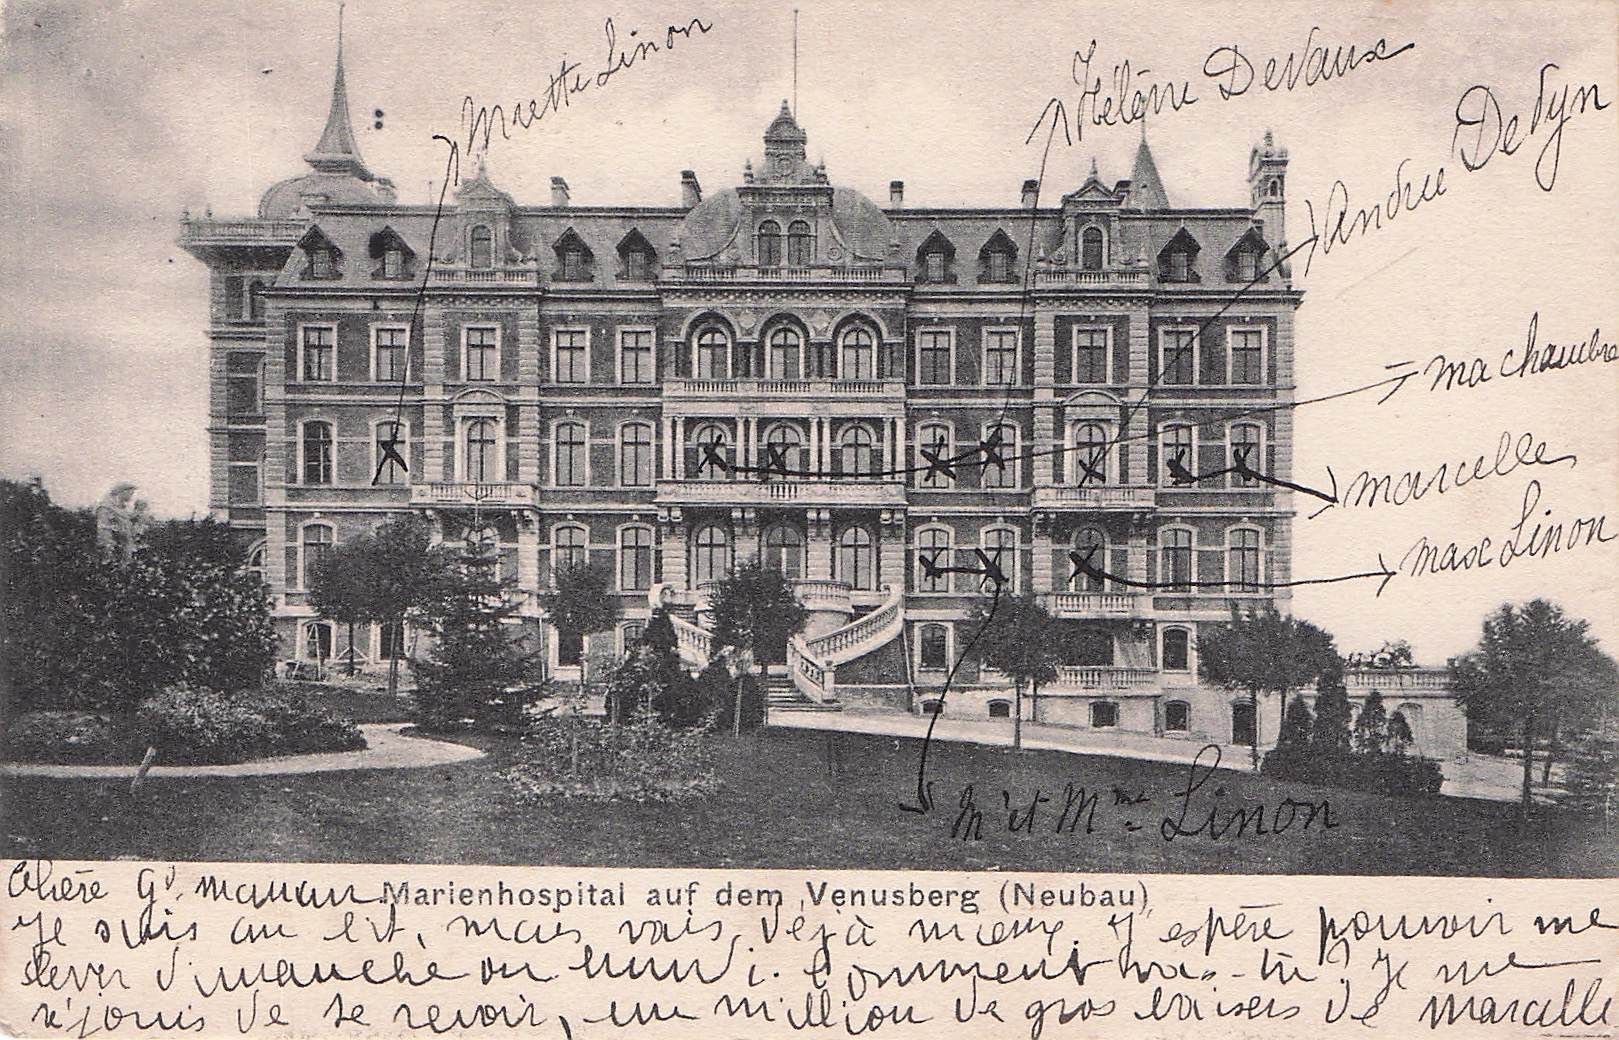 Linon
Hélène Devaux
Andrée Devyn
ma chambre
marcelle
max Linon
Mr et Mme Linon
Chère Gd. maman
Marienhospital auf dem Venusberg (Neubau)
Je suis au lit, mais vais déjà mieux. J'espère pouvoir me
lever dimanche ou lundi. Comment vas-tu? Je me
réjouis de te revoir, un million de gros baisers de Marcelle